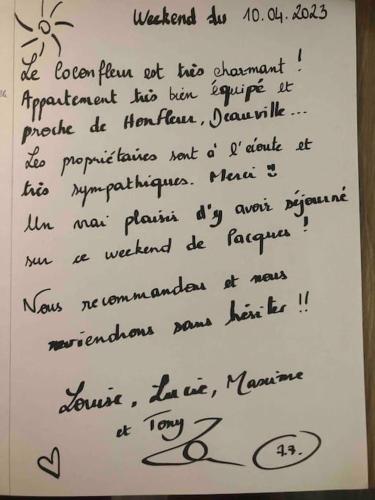 Weekend du 10.04.2023
Le Coconfleur est très charmant !
Appartement très bien équipé et
proche de Honfleur, Deauville...
Les propriétaires sont à l'écoute et
très sympathiques. Merci !!
Un vrai plaisir d'y avoir séjourné
sur ce weekend de Pacques !
Nous recommandons et nous
reviendrons sans hésiter !!
Louise, Lucie, Maxime
et Tony